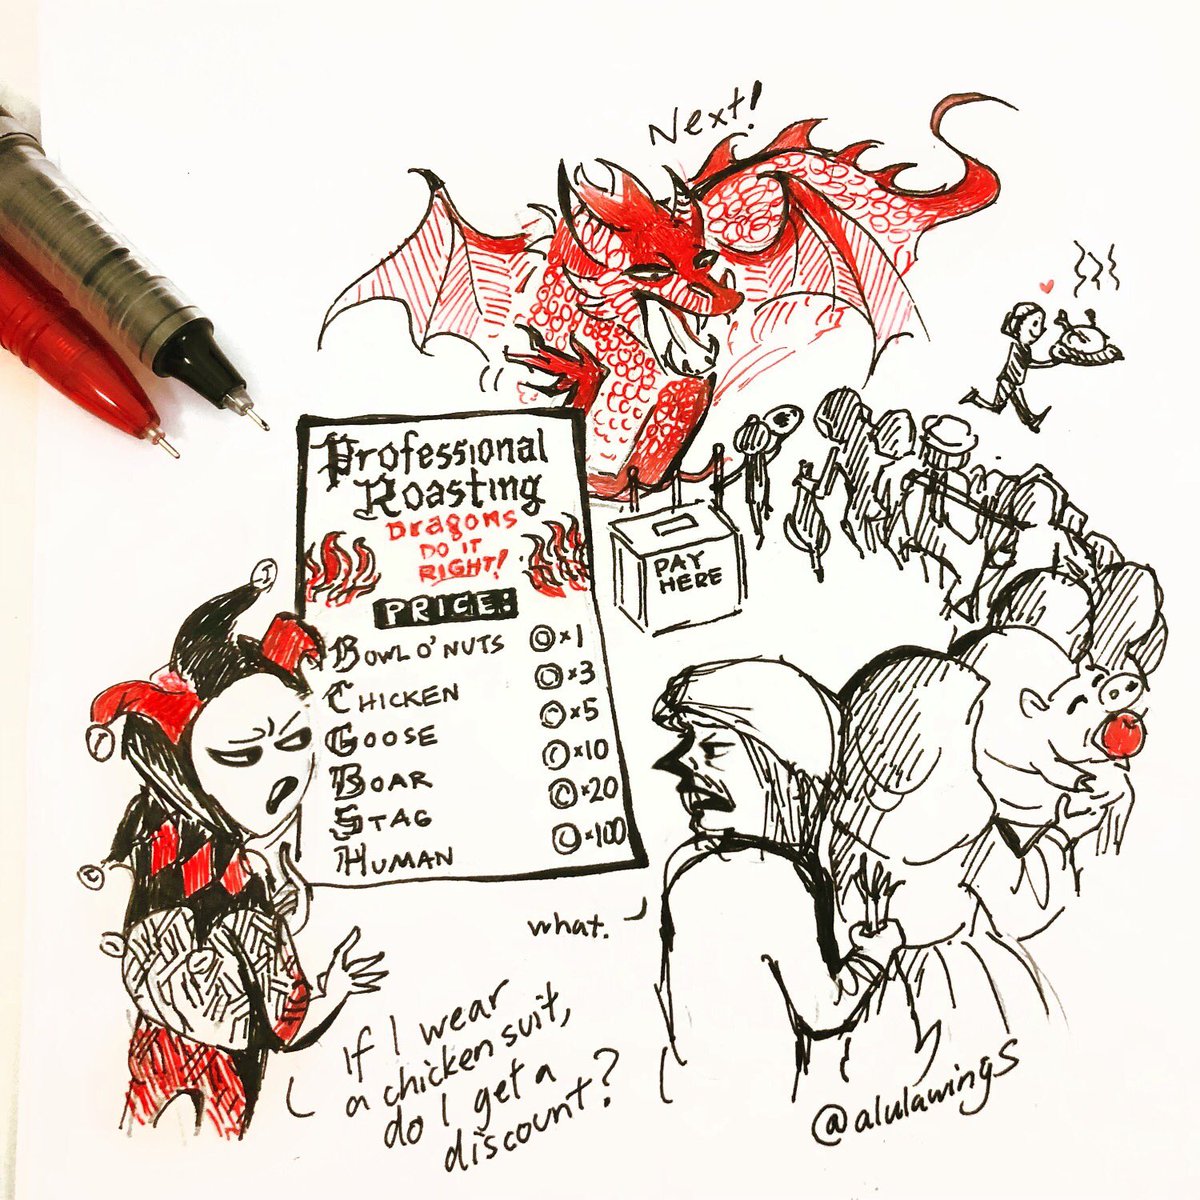 Next!
Professional
Roasting
Dragons
DO IT
RIGHT!
PRICE:
BOWL O' NUTS ©×1
CHICKEN ©×3
GOOSE ©×5
BOAR ©×10
STAG ©×20
HUMAN ©×100
PAY
HERE
what.
If I wear
a chicken suit,
do I get a
discount?
@alulawings